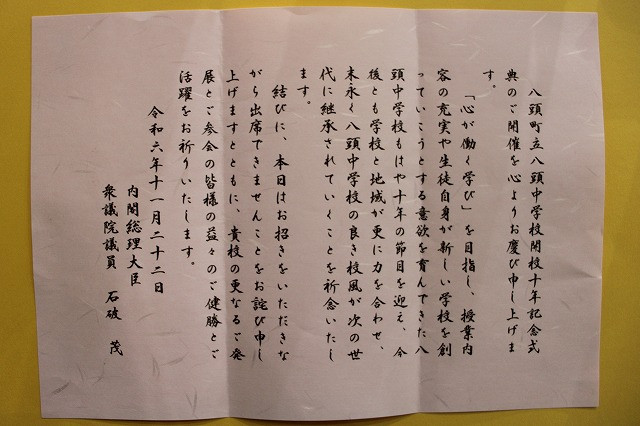 八頭町立八頭中学校開校十年記念式
典のご開催を心よりお慶び申し上げま
す。
「心が働く学び」を目指し、授業内
容の充実や生徒自身が新しい学校を創
っていこうとする意欲を育んできた八
頭中学校もはや十年の節目を迎え、今
後とも学校と地域が更に力を合わせ、
末永く八頭中学校の良き校風が次の世
代に継承されていくことを祈念いたし
ます。
結びに、本日はお招きをいただきな
がら出席できませんことをお詫び申し
上げますとともに、貴校の更なるご発
展とご参会の皆様の益々のご健勝とご
活躍をお祈りいたします。
令和六年十一月二十二日
内閣総理大臣
衆議院議員 石破 茂